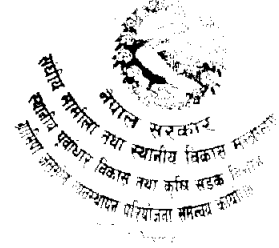 नेपाल सरकार
संघीय मामिला तथा स्थानीय विकास मन्त्रालय
स्थानीय पूर्वाधार विकास तथा कृषि सडक विभाग
व्यवस्थापन परियोजना समन्वय